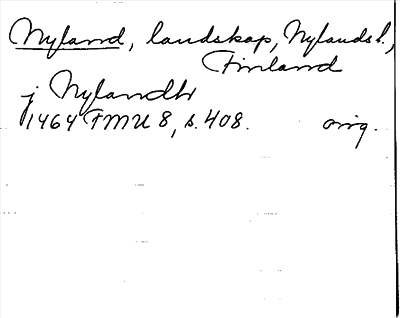 Nyland, landskap, Nylands l.,
Finland
j Nylandh
1464 FMU 8, s. 408. orig.